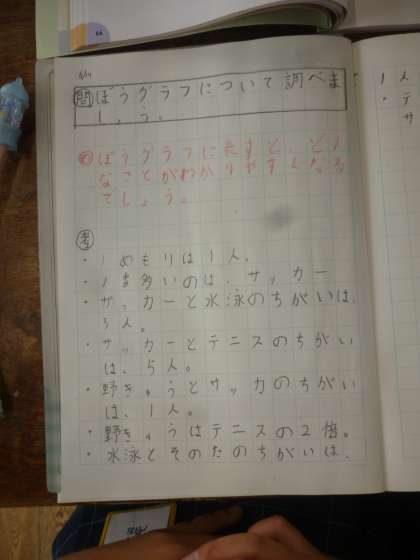 6/17
問 ぼうグラフについて調べま
しょう。
め ぼうグラフに表すと、どん
なことがわかりやすくなる
でしょう。
考
・1めもりは1人。
・1番多いのは、サッカー
・サッカーと水泳のちがいは、
3人。
・サッカーとテニスのちがい
は、5人。
・野きゅうとサッカのちがい
は、1人。
・野きゅうはテニスの2倍。
・水泳とそのたのちがいは、
1人
・テ
サ